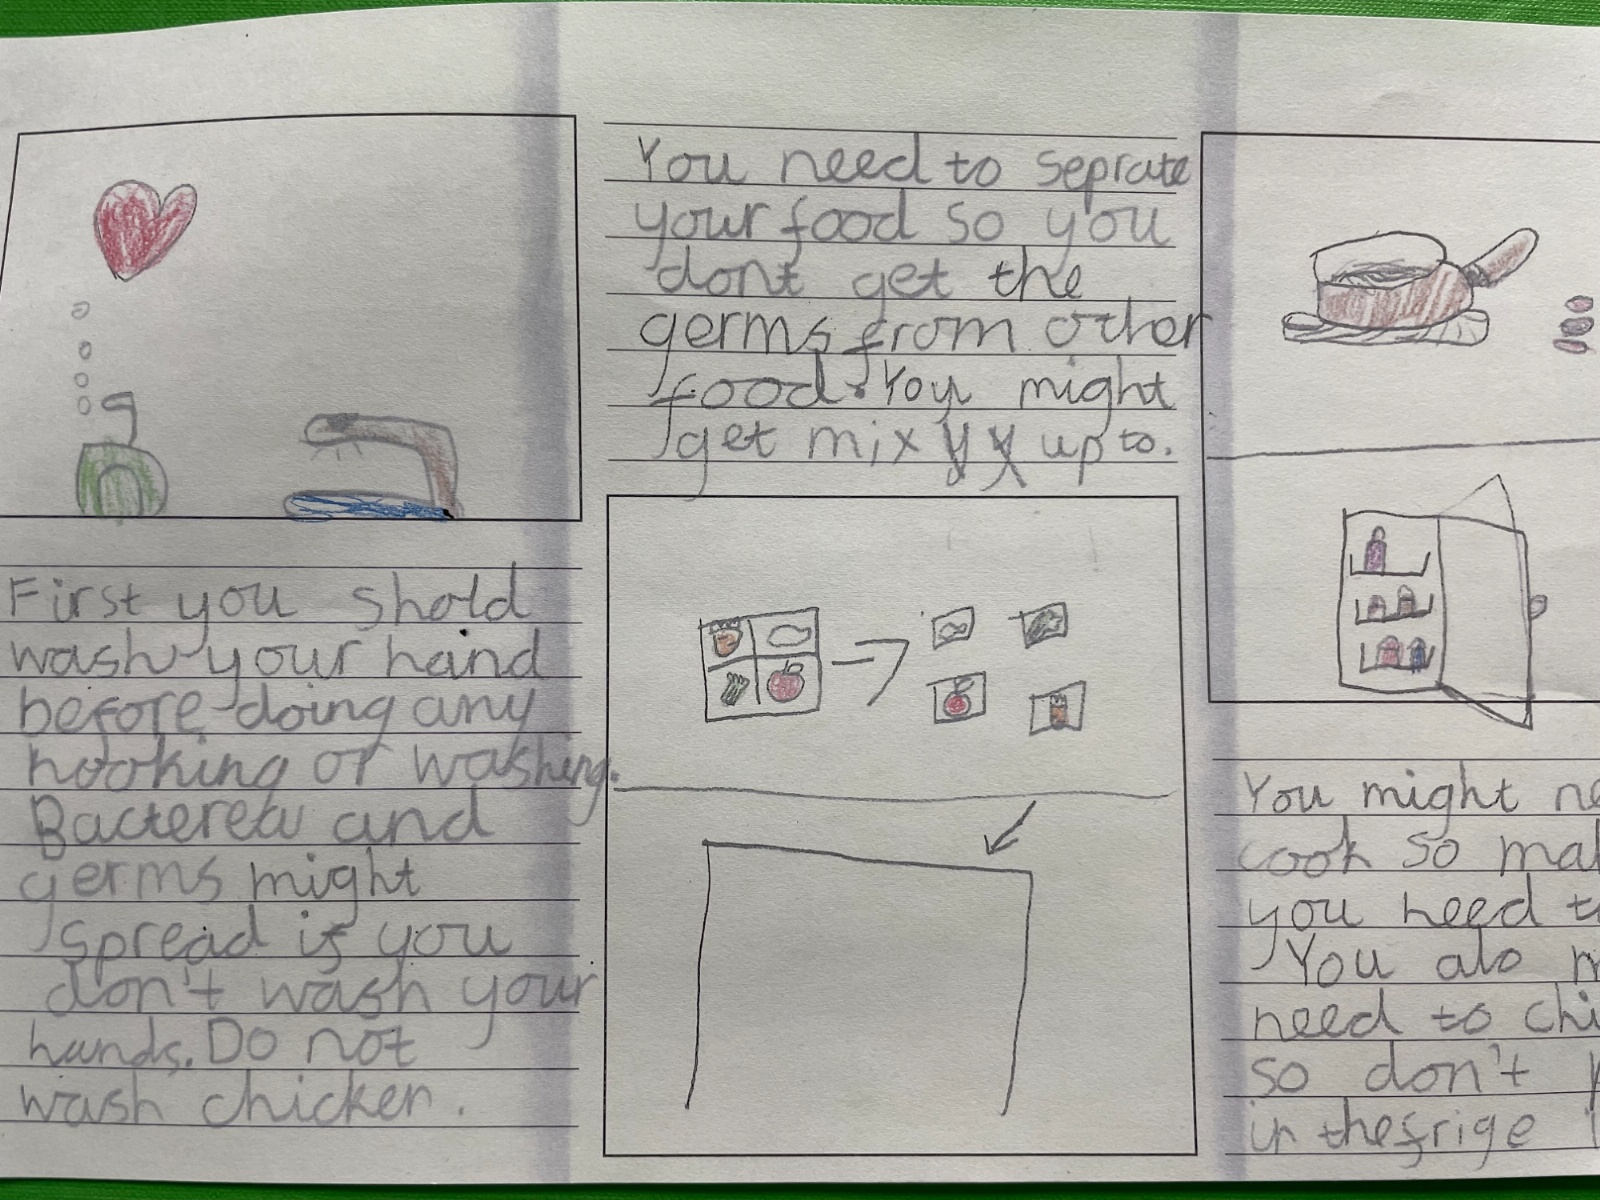 First you shold
wash your hand
before doing any
hooking or washing.
Bacterea and
germs might
spread if you
don't wash your
hands. Do not
wash chicken.
You need to seprate
your food so you
dont get the
germs from other
food. You might
get mix up to.
You might ne
cook so mak
you need t
You also m
need to chi
so don't p
in the frige